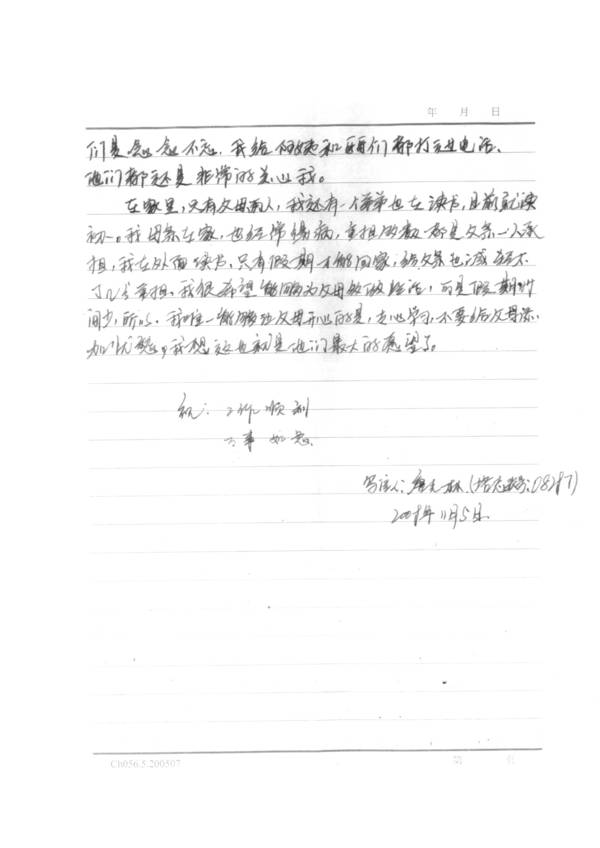 年 月 日
们是念念不忘，我给阿姨和 们都打过电话、
他们都还是非常的关心我。
在家里，只有父母两人，我还有一个弟弟也在读书，目前就读
初一。我母亲在家，也经常患病，重担的 都是父亲一人承
担，我在外面读书，只有假期才能回家，给父亲也减轻不
了几分重担，我很希望能够为父母做做 活，可是假期时
间少，所以，我唯一能够让父母开心的是，专心学习，不要给父母添
加忧愁，我想这也就是他们最大的愿望了。
祝：工作顺利
万事如意
写信人： 林(
2008年11月5日
Ch056.5.200507
第 页